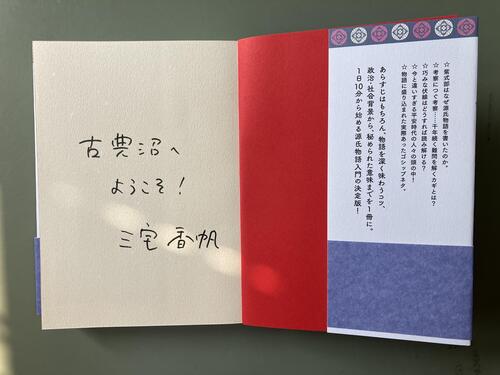 古典沼へ
ようこそ!
三宅香帆
☆紫式部はなぜ源氏物語を書いたのか。
☆考察につぐ考察……千年続く難問を解くカギとは?
☆巧みな伏線はどうすれば読み解ける?
☆今と違いすぎる平安時代の人々の頭の中!
☆物語に盛り込まれた実際あったゴシップネタ。
あらすじはもちろん、物語を深く味わうコツ、
政治・社会背景から、秘められた意味までを1冊に。
1日10分から始める源氏物語入門の決定版!